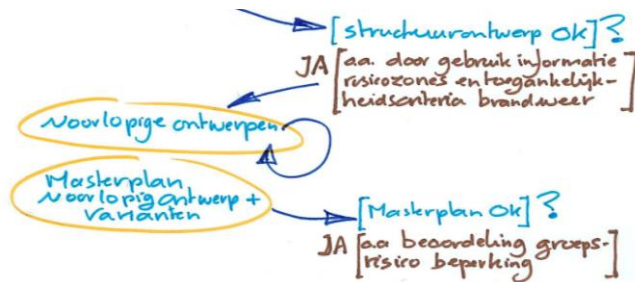 [structuurontwerp Ok]?
JA [a.a. door gebruik informatie
risicozones en toegankelijk-
heidscriteria brandweer]
Voorlopige ontwerpen
Masterplan
Voorlopig ontwerp +
varianten
[Masterplan Ok]?
JA [a.a beoordeling groeps-
risico beperking]